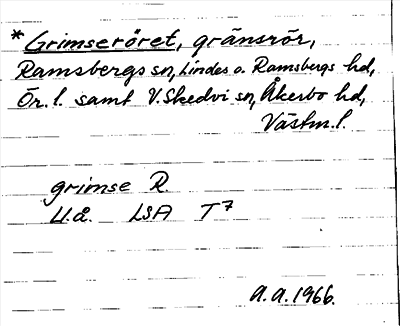 * Grimseröret, gränsrör,
Ramsbergs sn, Lindes o. Ramsbergs hd,
Ör. l. samt V. Skedvi sn, Åkerbo hd,
Västm. l.
grimse R
U.å. LSA T7
A.A. 1966.